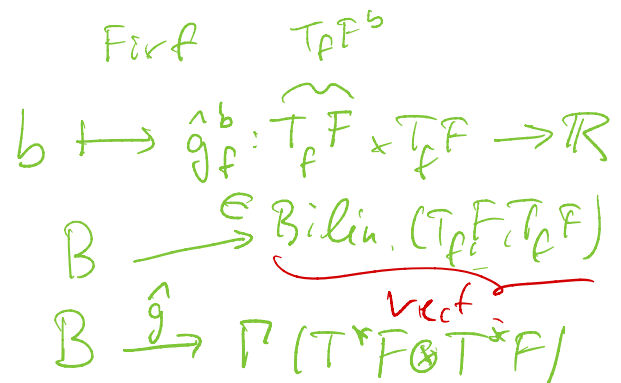 Fix f T_f F^b
b ↦ ĝ_f^b : T_f F × T_f F → ℝ
B → ∈ Bilin. (T_f F, T_f F)
vect
B →^ĝ Γ(T*F ⊗ T*F)